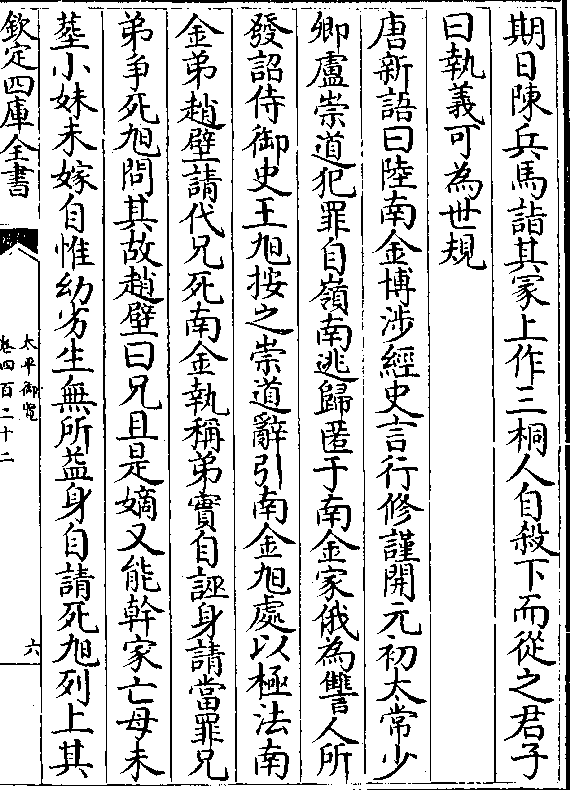 期日陳兵馬詣其冢上作三桐人自殺下而從之君子
曰執義可為世規
唐新語曰陸南金博涉經史言行修謹開元初太常少
卿盧崇道犯罪自嶺南逃歸匿于南金家俄為讐人所
發詔侍御史王旭按之崇道辭引南金旭處以極法南
金弟趙壁請代兄死南金執稱弟實自誣身請當罪兄
弟爭死旭問其故趙壁曰兄且是嫡又能幹家亡母未
塟小妹未嫁自惟幼劣生無所益身自請死旭列上其
欽定四庫全書
太平御覽
卷四百二十二
六